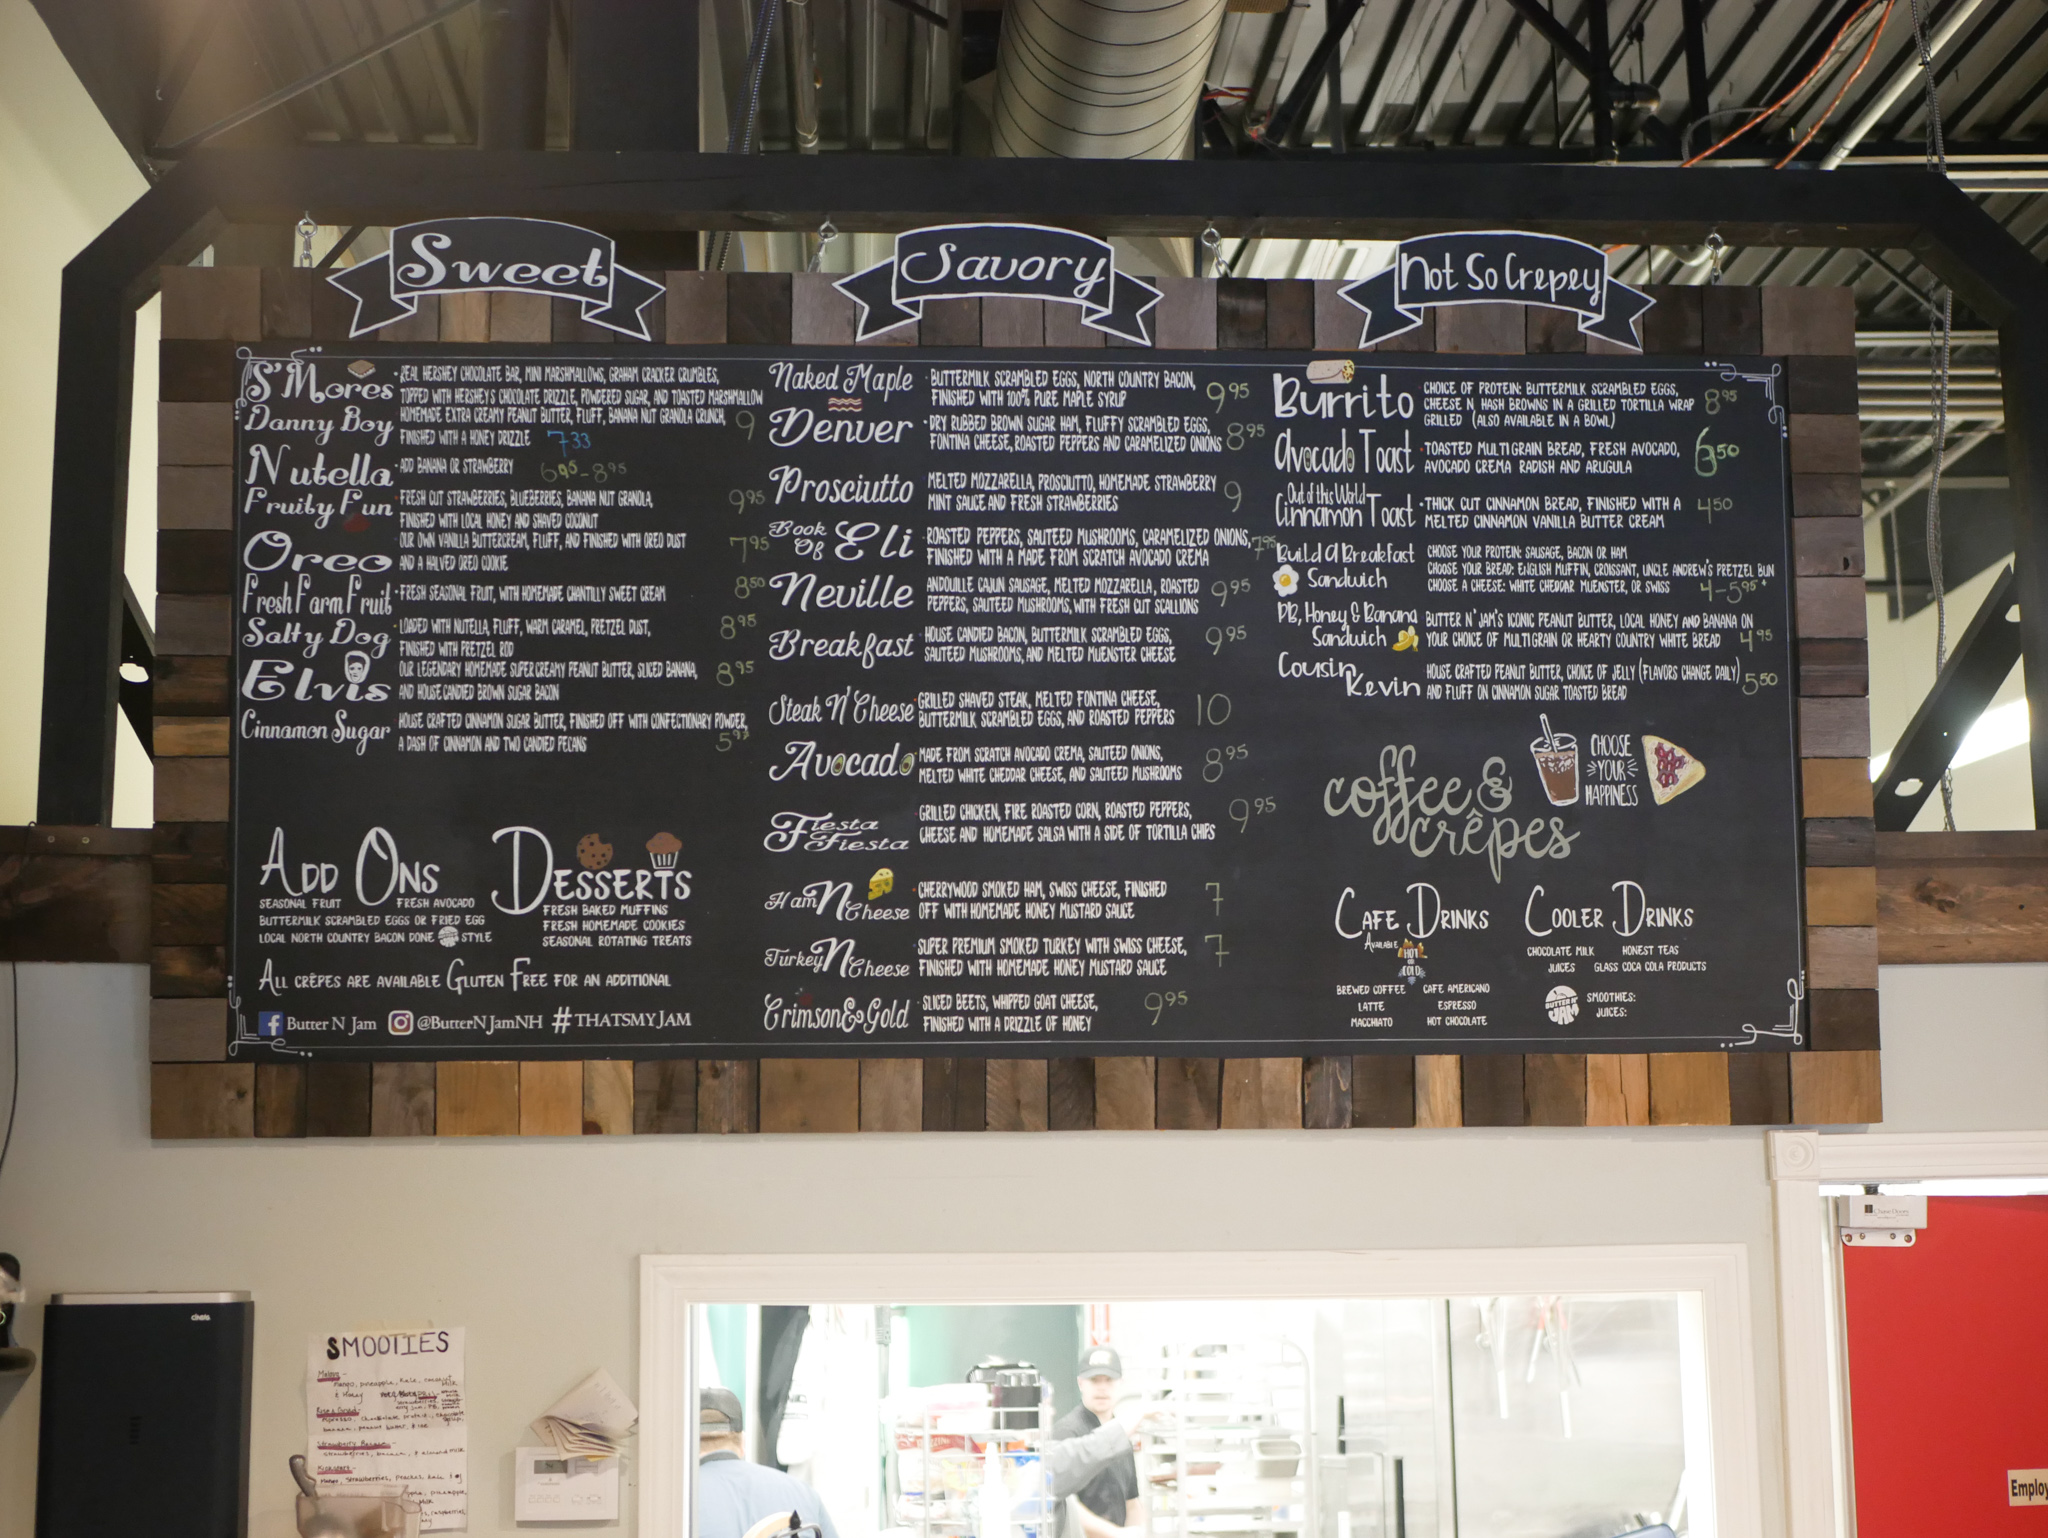 Sweet
Savory
Not So Crepey
S'Mores
REAL HERSHEY CHOCOLATE BAR, MINI MARSHMALLOWS, GRAHAM CRACKER CRUMBLES,
TOPPED WITH HERSHEY'S CHOCOLATE DRIZZLE, POWDERED SUGAR, AND TOASTED MARSHMALLOW
Danny Boy
HOMEMADE EXTRA CREAMY PEANUT BUTTER, FLUFF, BANANA NUT GRANOLA CRUNCH, 9
FINISHED WITH A HONEY DRIZZLE 733
Nutella
ADD BANANA OR STRAWBERRY 695-895
Fruity Fun
FRESH CUT STRAWBERRIES, BLUEBERRIES, BANANA NUT GRANOLA, 995
FINISHED WITH LOCAL HONEY AND SHAVED COCONUT
Oreo
OUR OWN VANILLA BUTTERCREAM, FLUFF, AND FINISHED WITH OREO DUST 795
AND A HALVED OREO COOKIE
Fresh Farm Fruit
FRESH SEASONAL FRUIT, WITH HOMEMADE CHANTILLY SWEET CREAM 850
Salty Dog
LOADED WITH NUTELLA, FLUFF, WARM CARAMEL, PRETZEL DUST, 895
FINISHED WITH PRETZEL ROD
Elvis
OUR LEGENDARY HOMEMADE SUPER CREAMY PEANUT BUTTER, SLICED BANANA, 895
AND HOUSE CANDIED BROWN SUGAR BACON
Cinnamon Sugar
HOUSE CRAFTED CINNAMON SUGAR BUTTER, FINISHED OFF WITH CONFECTIONARY POWDER,
A DASH OF CINNAMON AND TWO CANDIED PECANS
ADD ONS
SEASONAL FRUIT FRESH AVOCADO
BUTTERMILK SCRAMBLED EGGS OR FRIED EGG
LOCAL NORTH COUNTRY BACON DONE STYLE
DESSERTS
FRESH BAKED MUFFINS
FRESH HOMEMADE COOKIES
SEASONAL ROTATING TREATS
ALL CRÊPES ARE AVAILABLE GLUTEN FREE FOR AN ADDITIONAL
Butter N Jam @ButterNJamNH #THATSMYJAM
Naked Maple
BUTTERMILK SCRAMBLED EGGS, NORTH COUNTRY BACON, 995
FINISHED WITH 100% PURE MAPLE SYRUP
Denver
DRY RUBBED BROWN SUGAR HAM, FLUFFY SCRAMBLED EGGS, 895
FONTINA CHEESE, ROASTED PEPPERS AND CARAMELIZED ONIONS
Prosciutto
MELTED MOZZARELLA, PROSCIUTTO, HOMEMADE STRAWBERRY 9
MINT SAUCE AND FRESH STRAWBERRIES
Book Of Eli
ROASTED PEPPERS, SAUTEED MUSHROOMS, CARAMELIZED ONIONS, 795
FINISHED WITH A MADE FROM SCRATCH AVOCADO CREMA
Neville
ANDOUILLE CAJUN SAUSAGE, MELTED MOZZARELLA, ROASTED 995
PEPPERS, SAUTEED MUSHROOMS, WITH FRESH CUT SCALLIONS
Breakfast
HOUSE CANDIED BACON, BUTTERMILK SCRAMBLED EGGS, 995
SAUTEED MUSHROOMS, AND MELTED MUENSTER CHEESE
Steak N' Cheese
GRILLED SHAVED STEAK, MELTED FONTINA CHEESE, 10
BUTTERMILK SCRAMBLED EGGS, AND ROASTED PEPPERS
Avocado
MADE FROM SCRATCH AVOCADO CREMA, SAUTEED ONIONS, 895
MELTED WHITE CHEDDAR CHEESE, AND SAUTEED MUSHROOMS
Fiesta Fiesta
GRILLED CHICKEN, FIRE ROASTED CORN, ROASTED PEPPERS, 995
CHEESE AND HOMEMADE SALSA WITH A SIDE OF TORTILLA CHIPS
Ham N Cheese
CHERRYWOOD SMOKED HAM, SWISS CHEESE, FINISHED 7
OFF WITH HOMEMADE HONEY MUSTARD SAUCE
Turkey N Cheese
SUPER PREMIUM SMOKED TURKEY WITH SWISS CHEESE, 7
FINISHED WITH HOMEMADE HONEY MUSTARD SAUCE
Crimson & Gold
SLICED BEETS, WHIPPED GOAT CHEESE, 995
FINISHED WITH A DRIZZLE OF HONEY
Burrito
CHOICE OF PROTEIN: BUTTERMILK SCRAMBLED EGGS,
CHEESE N' HASH BROWNS IN A GRILLED TORTILLA WRAP 895
GRILLED (ALSO AVAILABLE IN A BOWL)
Avocado Toast
TOASTED MULTIGRAIN BREAD, FRESH AVOCADO, 650
AVOCADO CREMA RADISH AND ARUGULA
Out of this World
Cinnamon Toast
THICK CUT CINNAMON BREAD, FINISHED WITH A 450
MELTED CINNAMON VANILLA BUTTER CREAM
Build A Breakfast
Sandwich
CHOOSE YOUR PROTEIN: SAUSAGE, BACON OR HAM
CHOOSE YOUR BREAD: ENGLISH MUFFIN, CROISSANT, UNCLE ANDREW'S PRETZEL BUN
CHOOSE A CHEESE: WHITE CHEDDAR MUENSTER, OR SWISS 4-595+
PB, Honey & Banana
Sandwich
BUTTER N' JAM'S ICONIC PEANUT BUTTER, LOCAL HONEY AND BANANA ON
YOUR CHOICE OF MULTIGRAIN OR HEARTY COUNTRY WHITE BREAD 495
Cousin
Kevin
HOUSE CRAFTED PEANUT BUTTER, CHOICE OF JELLY (FLAVORS CHANGE DAILY) 550
AND FLUFF ON CINNAMON SUGAR TOASTED BREAD
coffee &
crêpes
CHOOSE
YOUR
HAPPINESS
CAFE DRINKS
AVAILABLE
HOT
OR
COLD
BREWED COFFEE CAFE AMERICANO
LATTE ESPRESSO
MACCHIATO HOT CHOCOLATE
COOLER DRINKS
CHOCOLATE MILK HONEST TEAS
JUICES GLASS COCA COLA PRODUCTS
BUTTER N' JAM
SMOOTHIES:
JUICES:
SMOOTIES
Employ